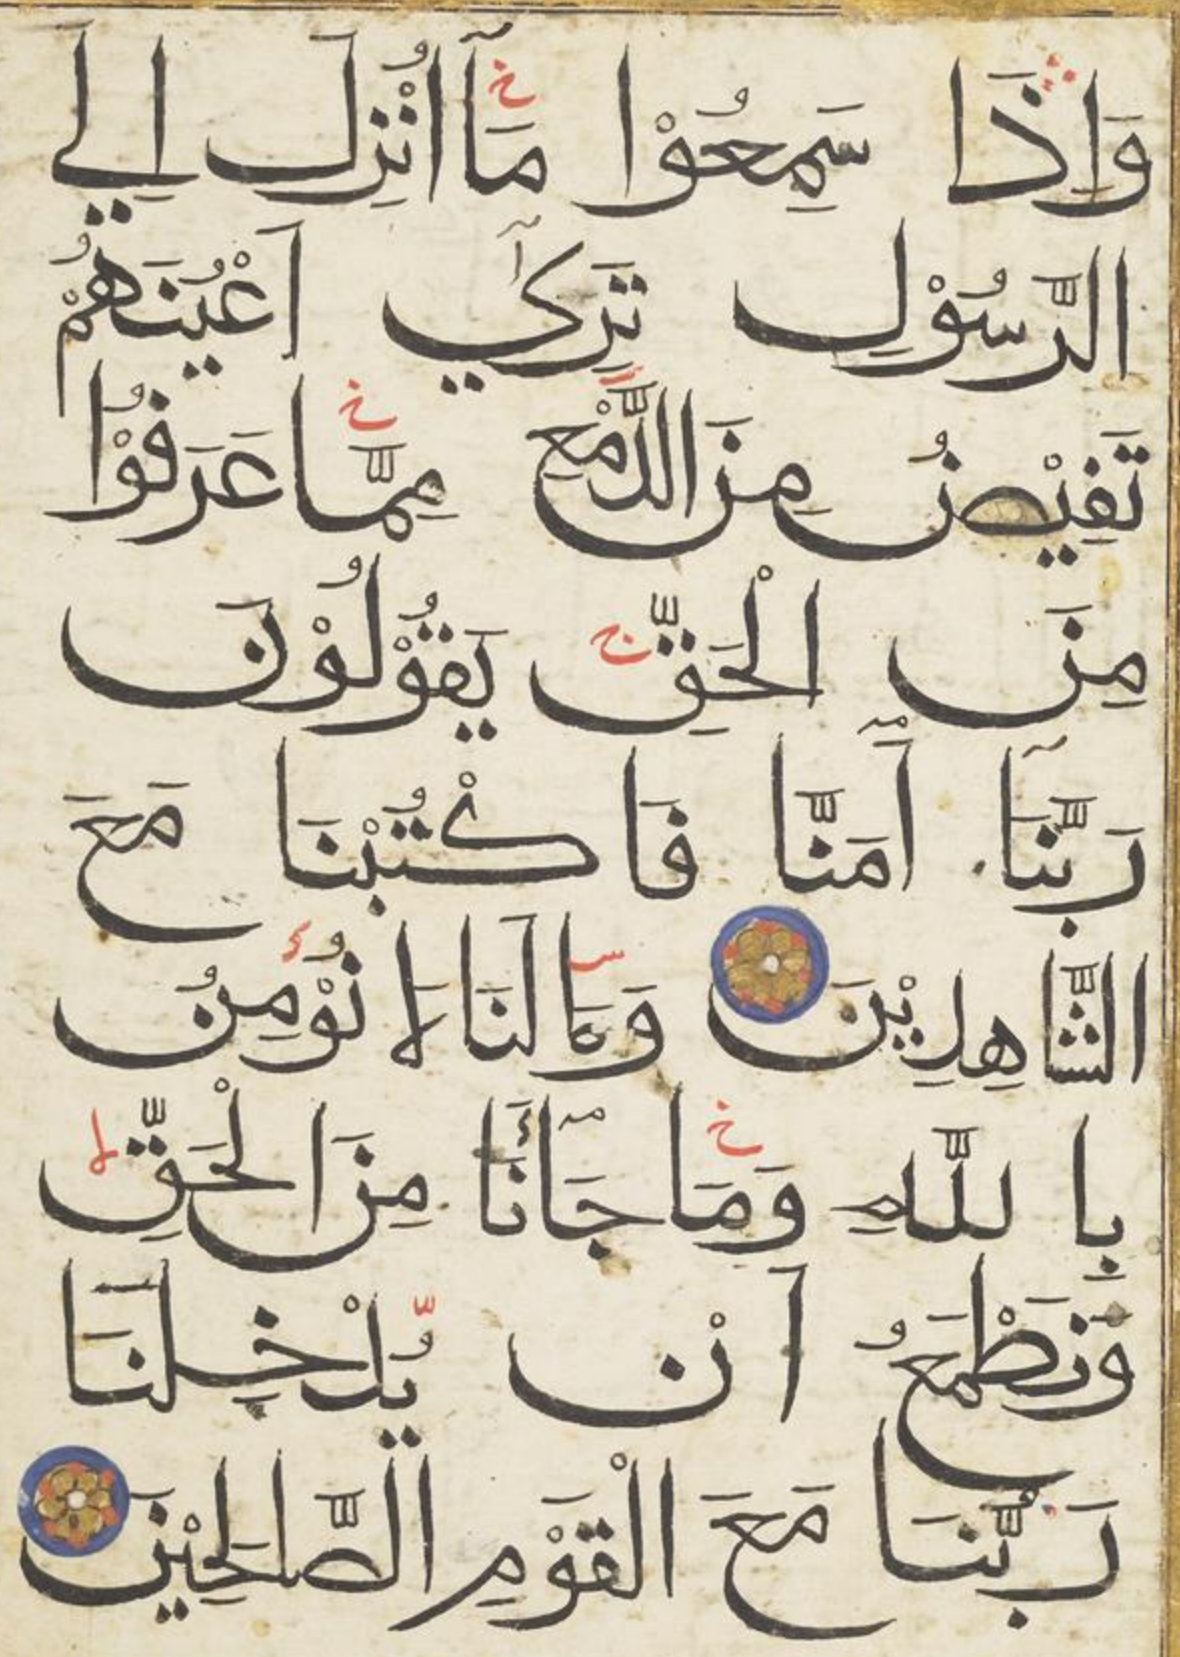 وَاِذَا سَمِعُوْا مَآ اُنْزِلَ اِلَي
الرَّسُوْلِ تَرٰٓي اَعْيُنَهُمْ
تَفِيْضُ مِنَ الدَّمْعِ مِمَّا عَرَفُوْا
مِنَ الْحَقِّ يَقُوْلُوْنَ
رَبَّنَآ اٰمَنَّا فَاكْتُبْنَا مَعَ
الشَّاهِدِيْنَ وَمَا لَنَا لَا نُؤْمِنُ
بِاللّٰهِ وَمَا جَآءَنَا مِنَ الْحَقِّ
وَنَطْمَعُ اَنْ يُّدْخِلَنَا
رَبُّنَا مَعَ الْقَوْمِ الصَّالِحِيْنَ